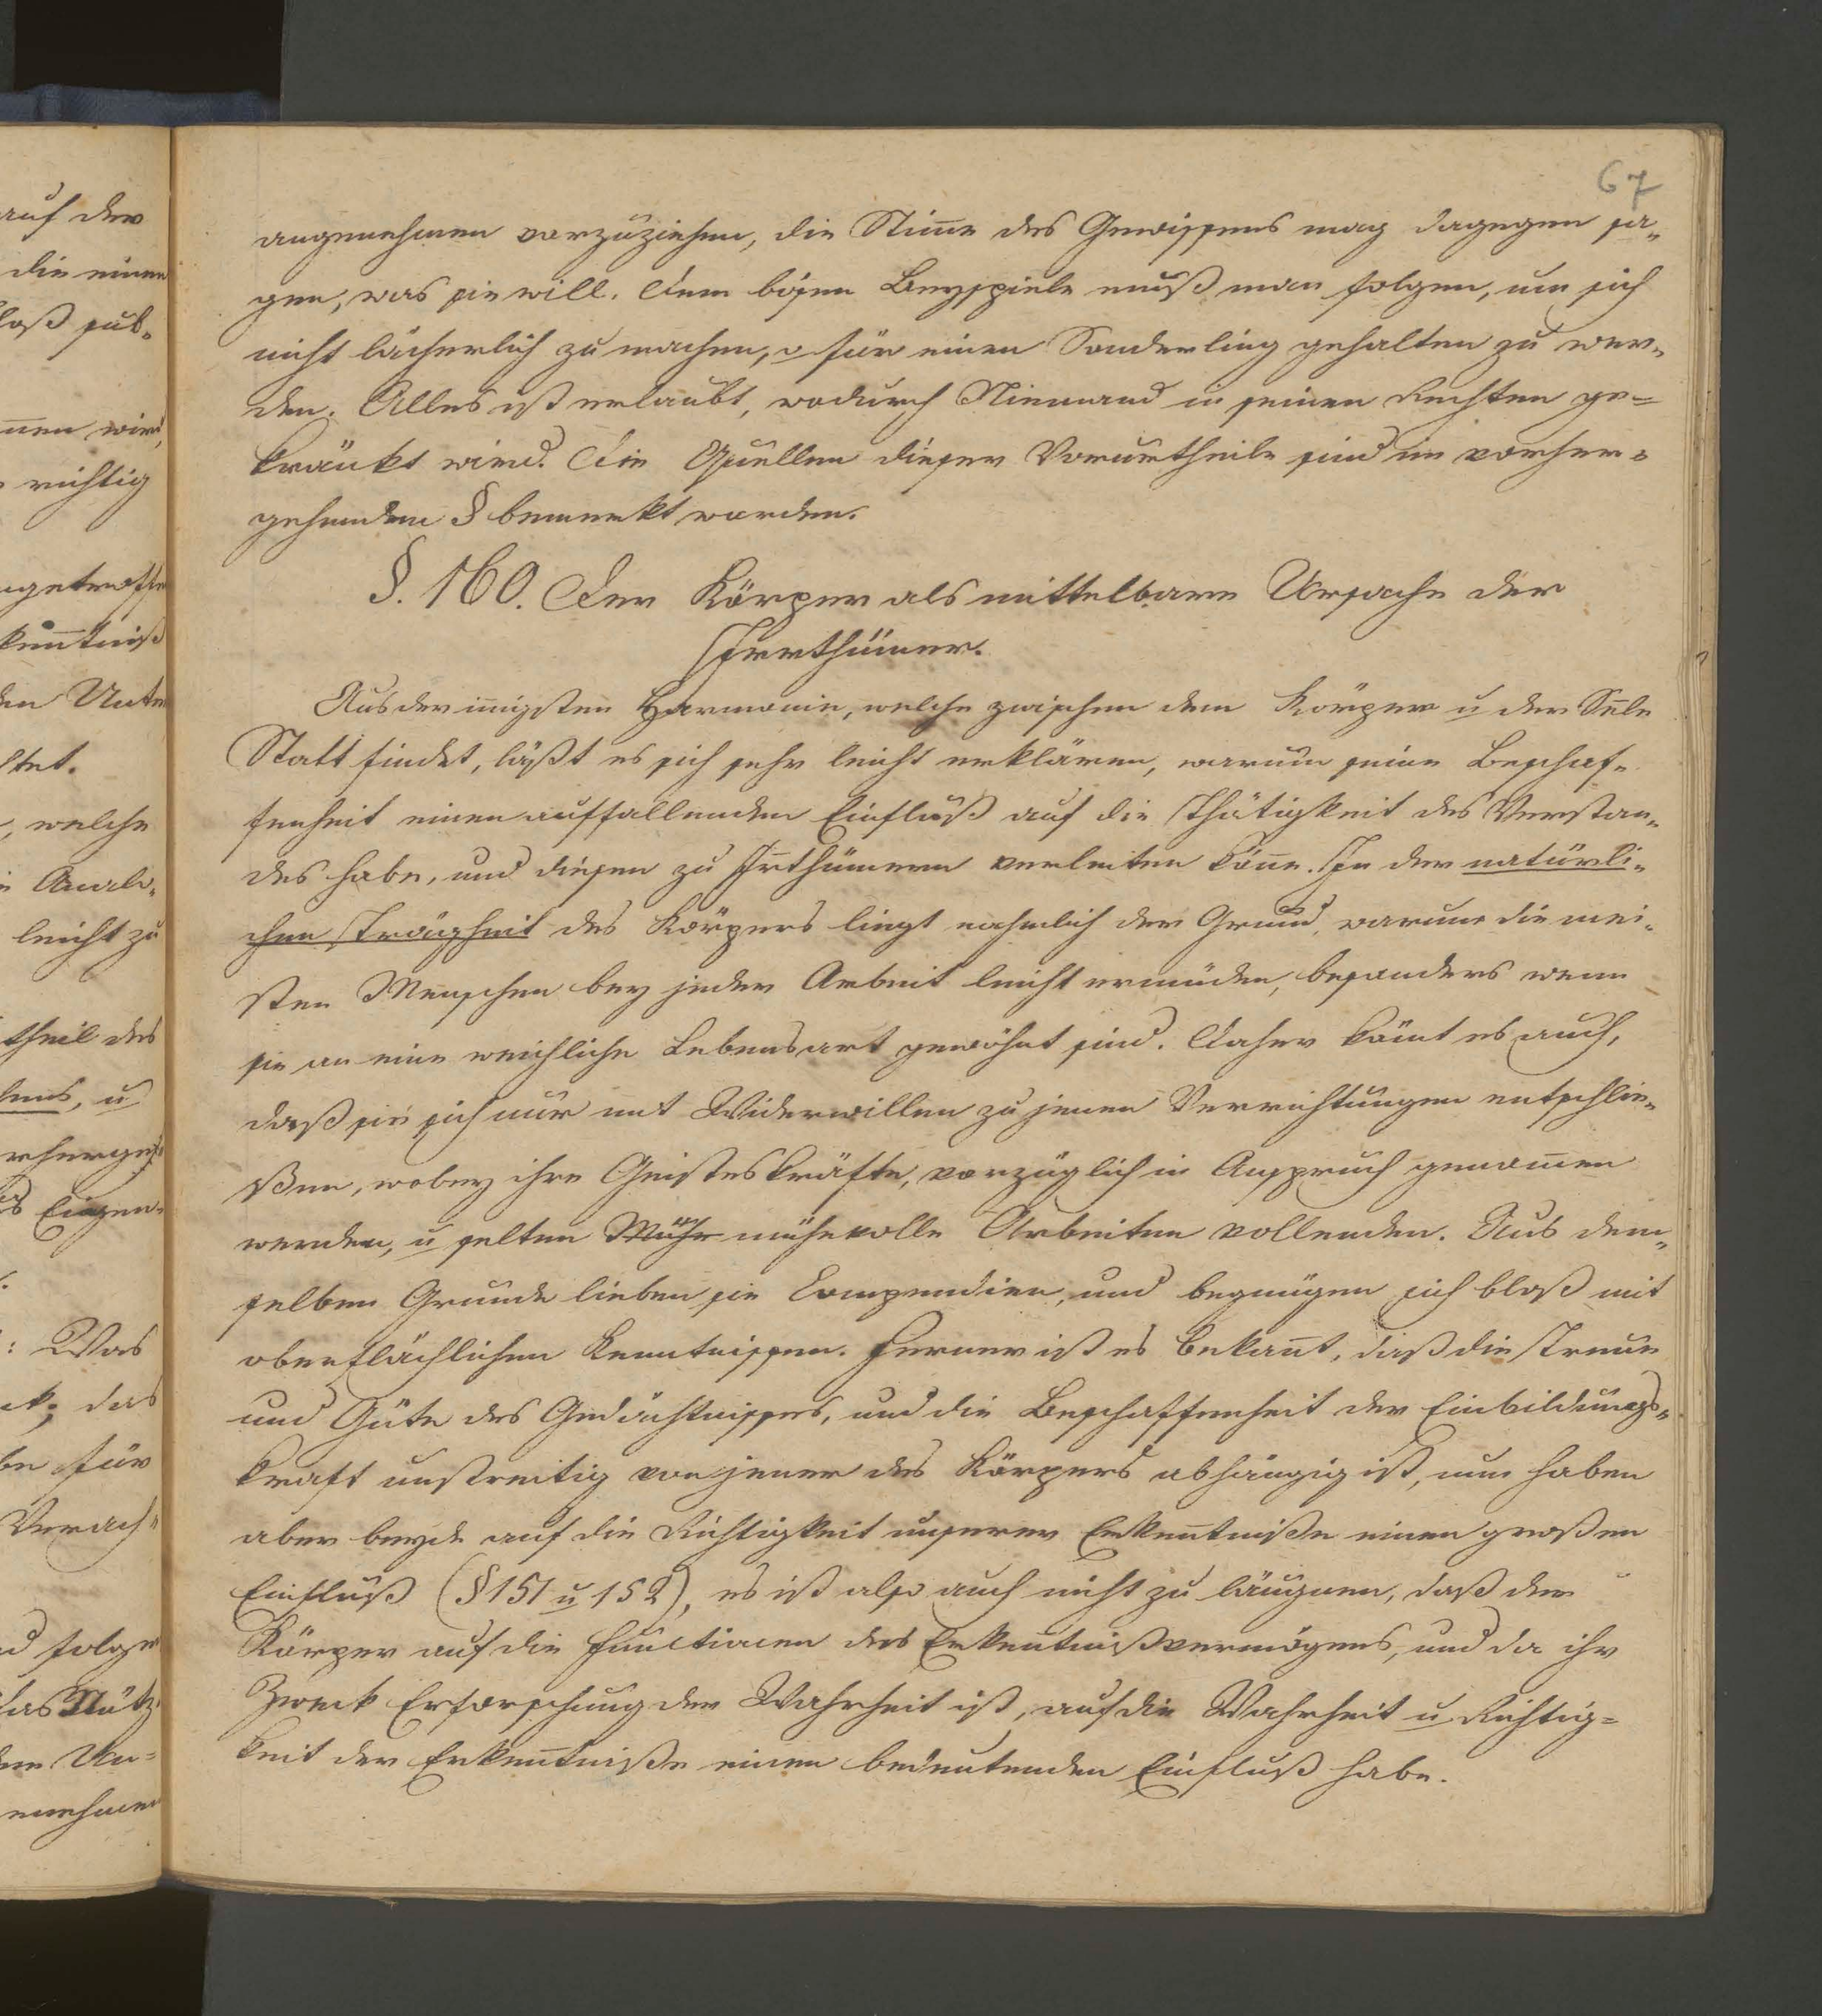 67
angenehmen vorzuziehen, die Stim̄e des Gewissens mag dagegen sa„
gen, was sie will. Dem bösen Beyspiele muß man folgen, um sich
nicht lächerlich zu machen, o für einen Sonderling gehalten zu wer„
den. Alles ist erlaubt, wodurch Niemand in seinen Rechten ge=
kränkt wird. Die Quellen dieser Vorurtheile sind im vorher=
gehenden § bemerkt worden.
§. 160. Der Körper als mittelbare Ursache der
Irrthümer.
Aus der in̄igsten Harmonie, welche zwischen dem Körper u der Sele
Statt findet, läßt es sich sehr leicht erklären, warum seine Beschaf„
fenheit einen auffallenden Einfluß auf die Thätigkeit des Verstan„
des habe, und diesen zu Irr̄thümern verleiten kön̄e. In der natürli„
chen Trägheit des Körpers liegt nahmlich der Grund, warum die mei„
sten Menschen bey jeder Arbeit leicht ermüden, besonders wenn
sie an eine weichliche Lebensart gewöhnt sind. Daher köm̄t es auch,
daß sie sich nur mit Widerwillen zu jenen Verrichtungen entschlie„
ßen, wobey ihre Geisteskräfte, vorzüglich in Anspruch genom̄en
werden, u selten Mühe mühevolle Arbeiten vollenden. Aus dem„
selben Grunde lieben sie Compendien, und begnügen sich bloß mit
oberflächlichen Kenntnissen. Ferner ist es bekan̄t, daß die Treue
und Güte des Gedächtnisses, und die Beschaffenheit der Einbildungs„
kraft unstreitig von jener des Körpers abhängig ist, nun haben
aber beyde auf die Richtigkeit unserer Erken̄tniße einen großen
Einfluß (§ 151 u 152), es ist also auch nicht zu läugnen, daß der
Körper auf die Functionen des Erkentnißvermögens, und da ihr
Zweck Erforschung der Wahrheit ist, auf die Wahrheit u Richtig=
keit der Erken̄tniße einen bedeutenden Einfluß habe.
auf der
die einen
loß sub„
nen wird,
richtig
ken̄tniß
den Unte
ltet.
, welche
leicht zu
theil des
Eigen„
: Was
das
für
Verach„
folge
das Nütz„